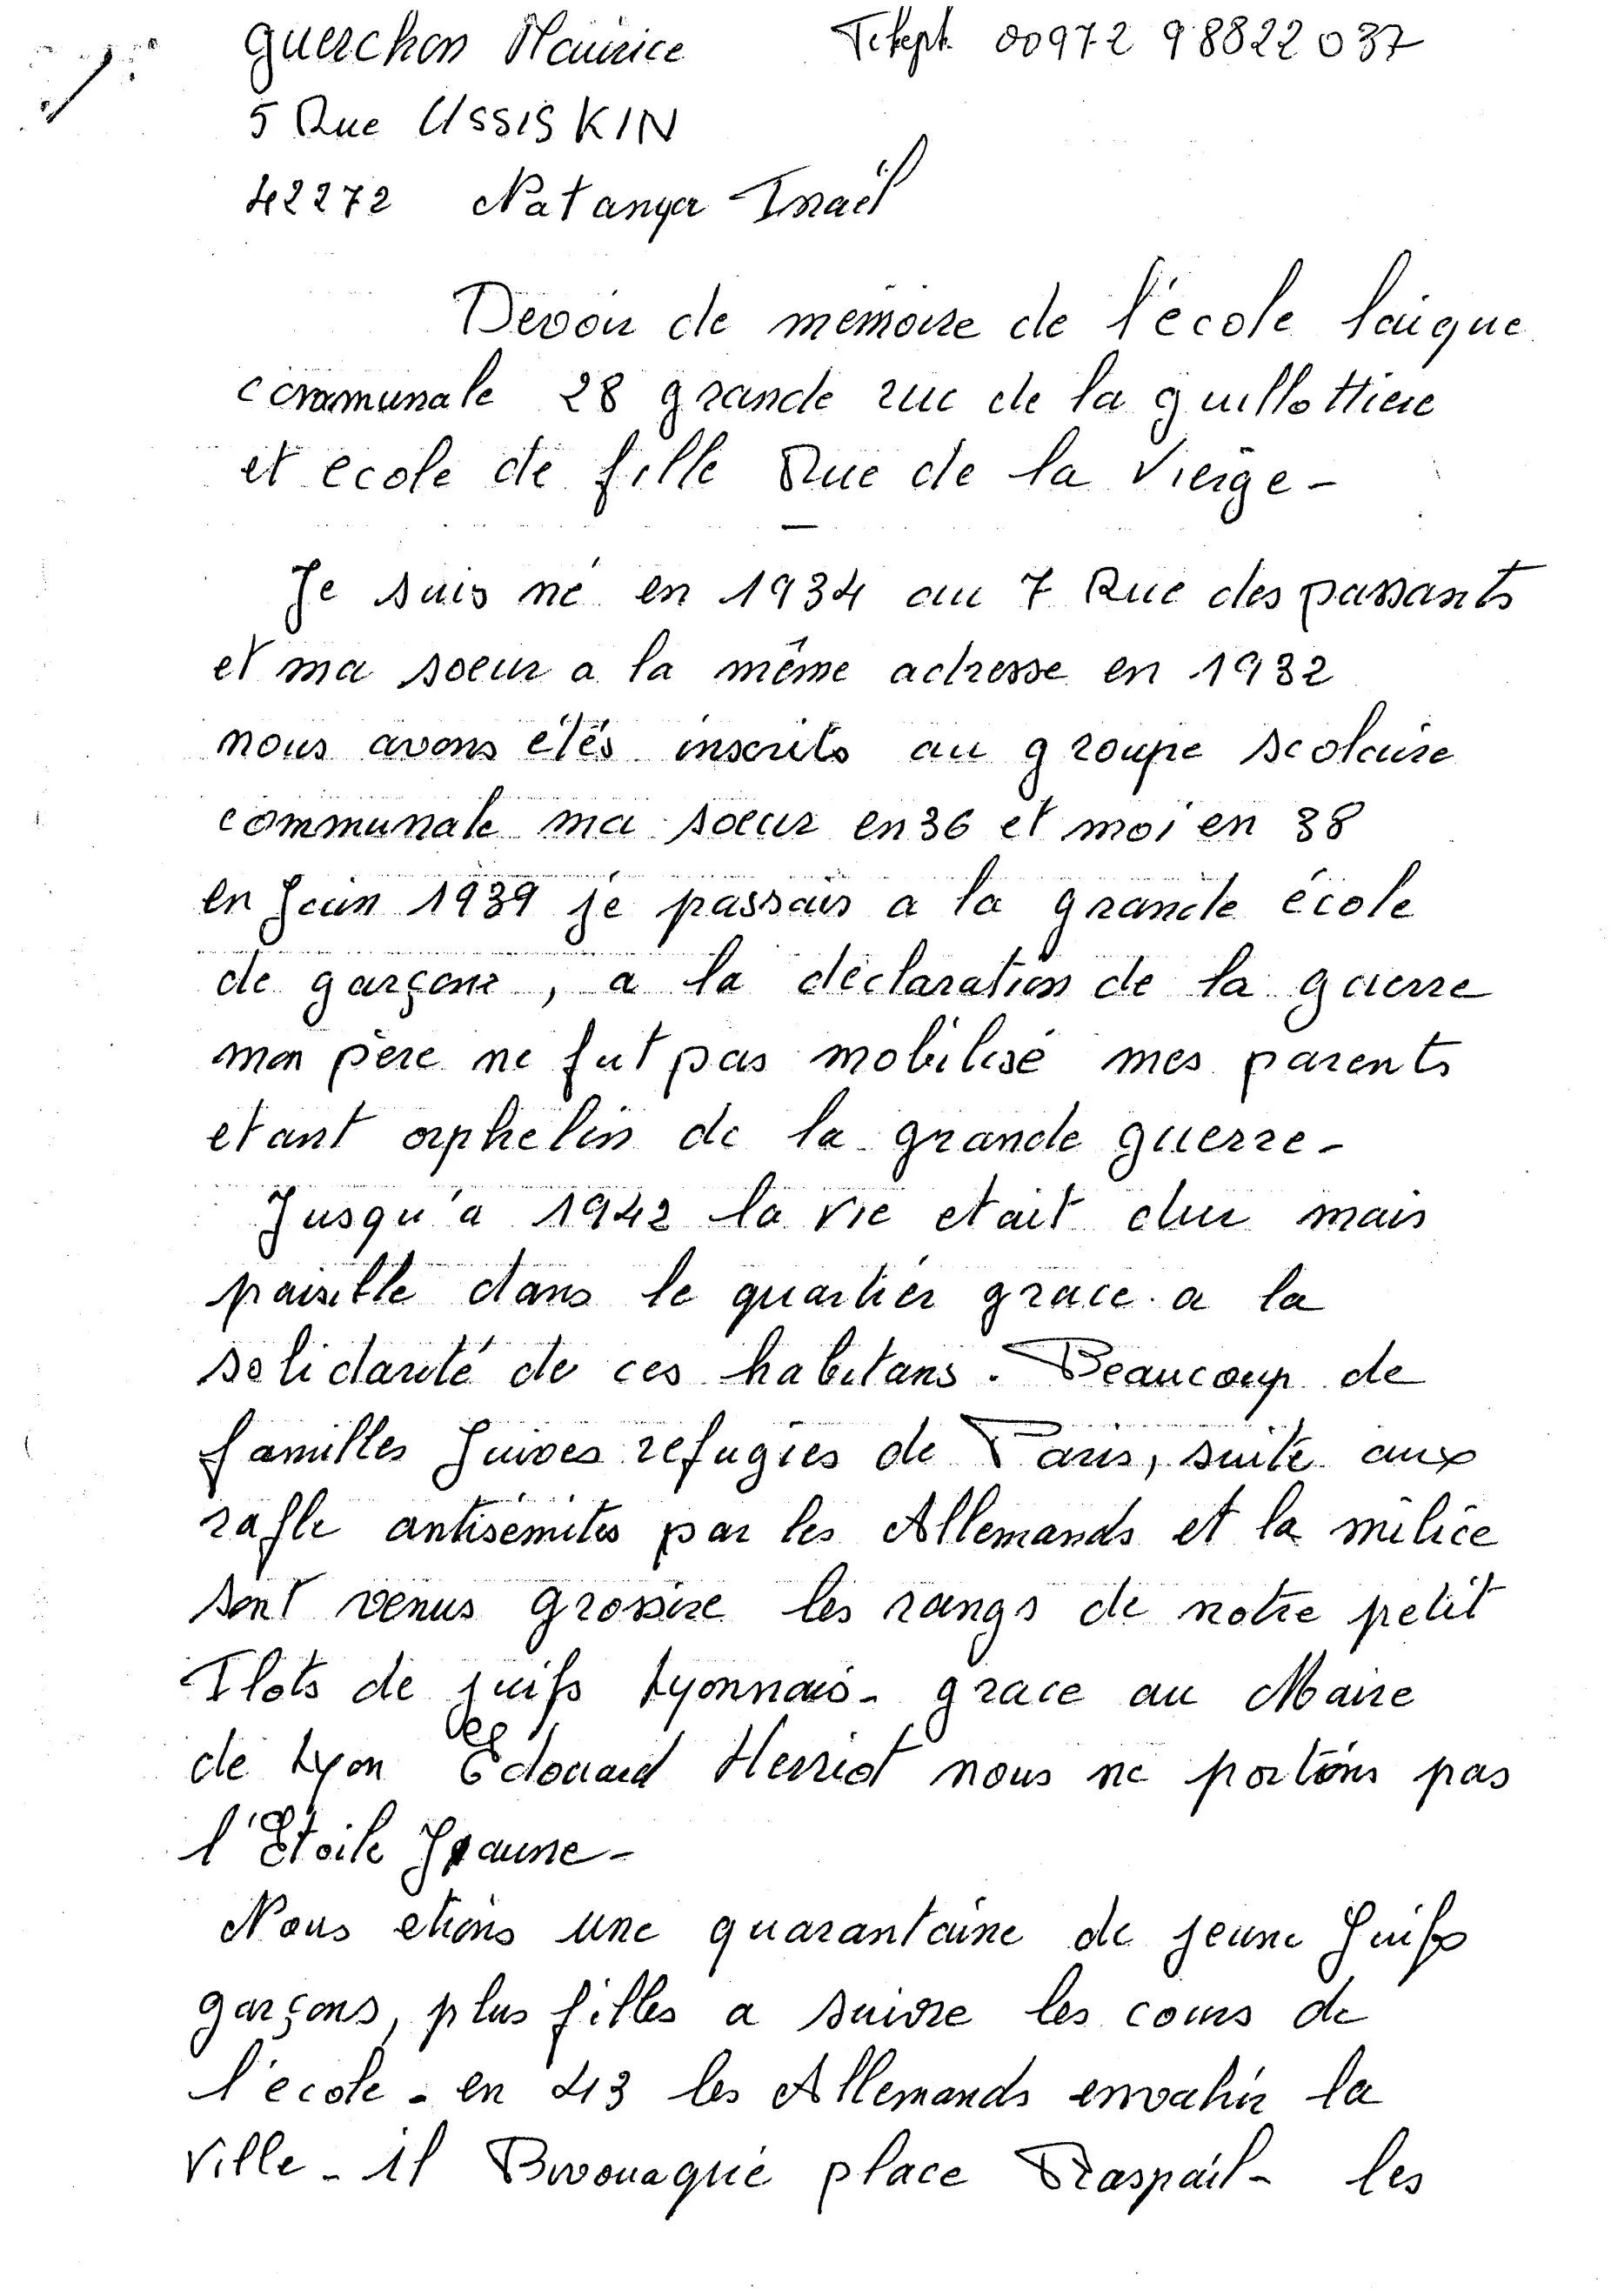 Guerchon Maurice Teleph. 00972 98822037
5 Rue USSISKIN
42272 Natanya Israël
Devoir de mémoire de l'école laique
communale 28 grande rue de la guillottiere
et ecole de fille Rue de la Vierge -
Je suis né en 1934 au 7 Rue des passants
et ma soeur a la même adresse en 1932
nous avons étés inscrits au groupe scolaire
communale ma soeur en 36 et moi en 38
en Juin 1939 je passais a la grande école
de garçons, a la déclaration de la guerre
mon père ne fut pas mobilisé mes parents
etant orphelin de la grande guerre -
Jusqu'a 1942 la vie etait dur mais
paisible dans le quartier grace a la
solidarité de ces habitans. Beaucoup de
familles Juives refugies de Paris, suite aux
rafle antisémites par les Allemands et la milice
sont venus grossire les rangs de notre petit
Ilots de juifs Lyonnais - grace au Maire
de Lyon Edouard Herriot nous ne portons pas
l'Etoile Jaune -
Nous etions une quarantaine de jeune Juifs
garçons, plus filles a suivre les cours de
l'ecole - en 43 les Allemands envahir la
Ville - il Bivouaque place Raspail - les